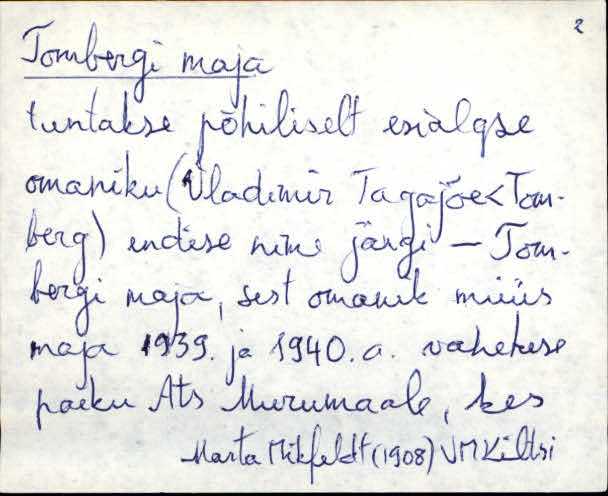 2
Tombergi maja
tuntakse põhiliselt esialgse
omaniku (Vladimir Tagajõe < Tom-
berg) endise nime järgi — Tom-
bergi maja, sest omanik müüs
maja 1939. ja 1940. a. vahetuse
paeku Ats Murumaale, kes
Marta Mikfeldt (1908) VM Kiltsi